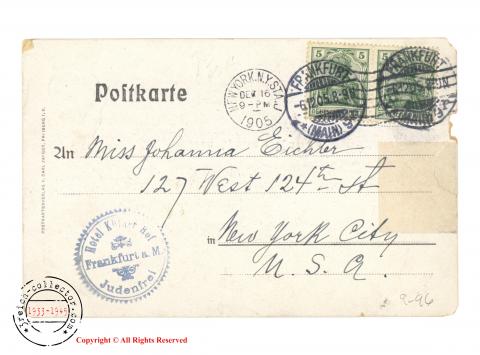 5 5
NEW YORK, N.Y. STA. J
DEC 16
9-PM
1905
FRANKFURT
6.12.05. 8-9N.
*(MAIN) 9*
FRANKFURT
Poſtkarte
An Miss Johanna Eichler
127 West 124th St
in New York City
U. S. A.
Hotel Kölner Hof
Frankfurt a. M.
Judenfrei
9-96
reich-collector.com
1933-1945
Copyright © All Rights Reserved